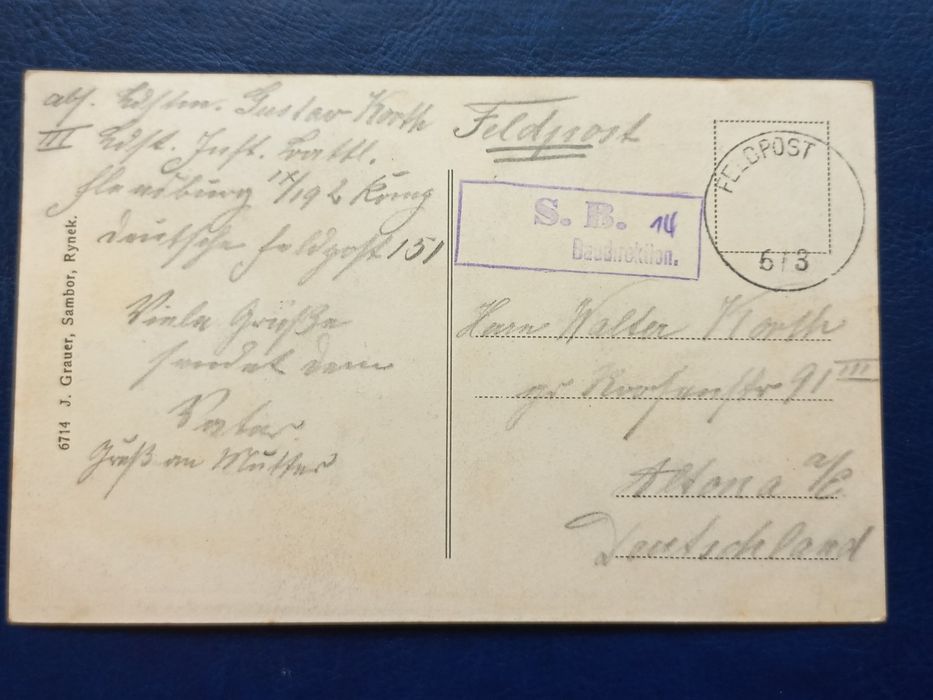 abs. Ldstm. Gustav Korth
III Ldst. Inft. Battl.
Flensburg IX/19 2 Komp
Deutsche Feldpost 151
Viele Grüße
sendet dein
Vater
Gruß an Mutter
6714 J. Grauer, Sambor, Rynek.
Feldpost
S. B. 14
Baudirektion.
FELDPOST
613
Herrn Walter Korth
gr Roosenstr 91 III
Altona a/E
Deutschland